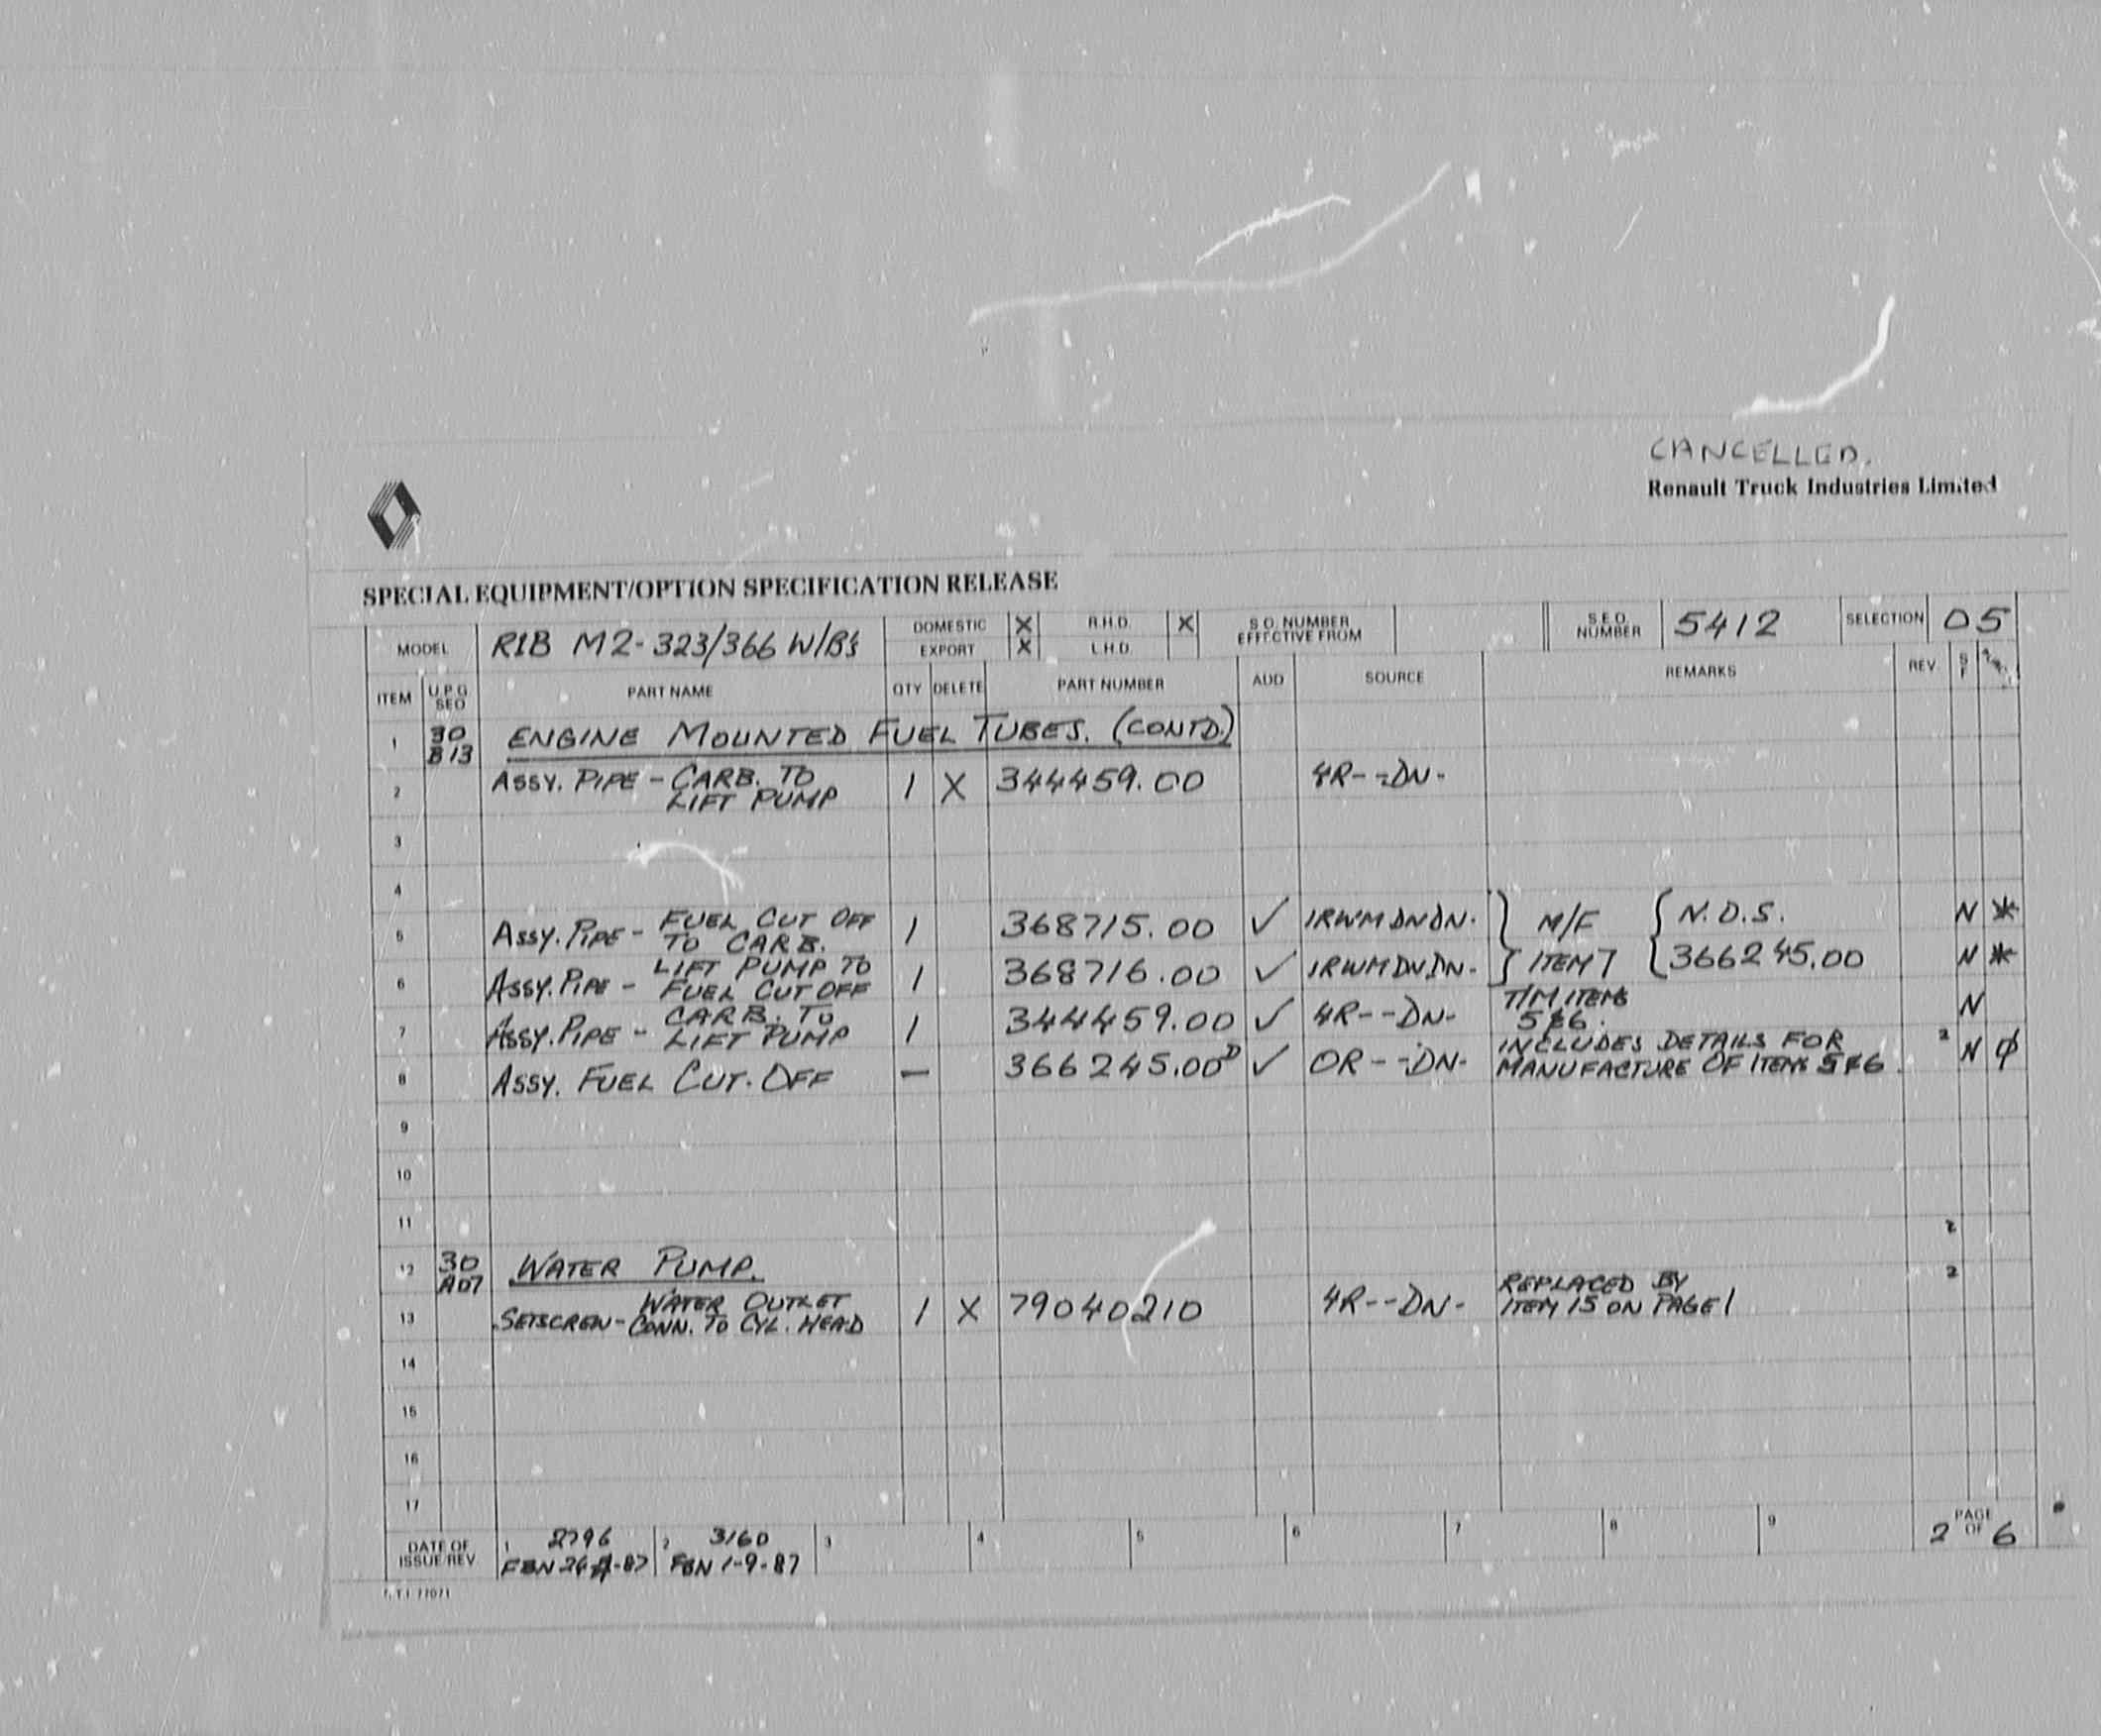 CANCELLED.
Renault Truck Industries Limited
SPECIAL EQUIPMENT/OPTION SPECIFICATION RELEASE
MODEL R1B M2-323/366 W/B's DOMESTIC X R.H.D. X S.O. NUMBER EFFECTIVE FROM S.E.O. NUMBER 5412 SELECTION 05
EXPORT X L.H.D.
ITEM U.P.G SEO PART NAME QTY DELETE PART NUMBER ADD SOURCE REMARKS REV. S F
1 30 B13 ENGINE MOUNTED FUEL TUBES. (CONTD.)
2 ASSY. PIPE - CARB. TO LIFT PUMP 1 X 344459.00 4R--DN-
3
4
5 ASSY. PIPE - FUEL CUT OFF TO CARB. 1 368715.00 ✓ 1RWMDNDN. } M/F { N.D.S. N *
6 ASSY. PIPE - LIFT PUMP TO FUEL CUT OFF 1 368716.00 ✓ 1RWMDNDN- } ITEM 7 { 366245.00 N *
7 ASSY. PIPE - CARB. TO LIFT PUMP 1 344459.00 ✓ 4R--DN- T/M ITEMS 5&6. N
8 ASSY. FUEL CUT-OFF - 366245.00D ✓ OR--DN- INCLUDES DETAILS FOR MANUFACTURE OF ITEMS 5&6. 2 N φ
9
10
11 2
12 30 A07 WATER PUMP. 2
13 SETSCREW - WATER OUTLET CONN. TO CYL. HEAD 1 X 79040210 4R--DN- REPLACED BY ITEM 15 ON PAGE 1
14
15
16
17
DATE OF ISSUE/REV. 1 2796 2 3160 3 4 5 6 7 8 9 PAGE 2 OF 6
FBN 1-9-87